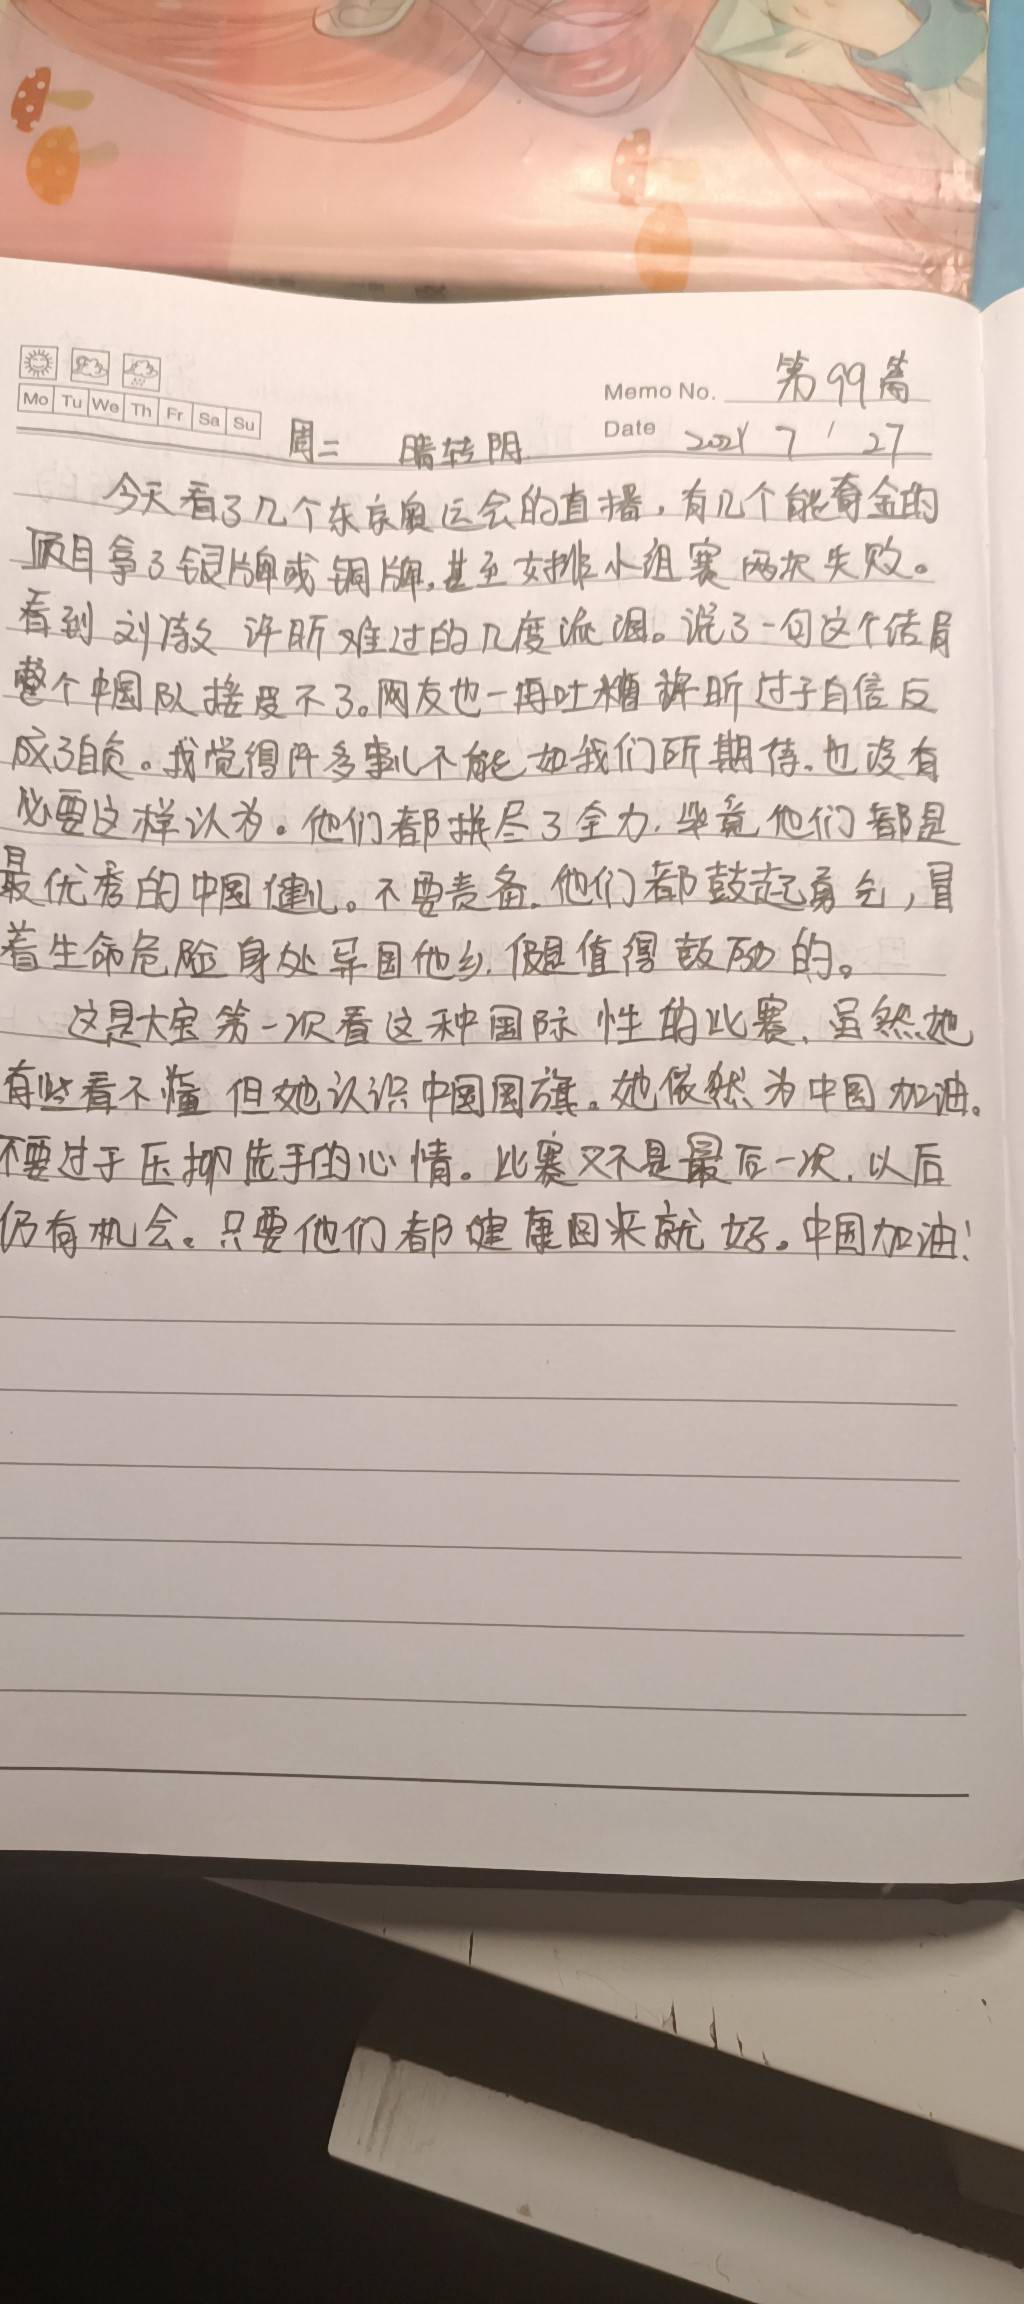 Memo No. 第99篇
Mo Tu We Th Fr Sa Su
Date 2021 7 / 27
周二 晴转阴
今天看了几个东京奥运会的直播，有几个能夺金的
项目拿了银牌或铜牌，甚至女排小组赛两次失败。
看到刘诗雯 许昕难过的几度流泪。说了一句这个结局
整个中国队接受不了。网友也一再吐槽许昕过于自信反
成了自负。我觉得许多事儿不能如我们所期待，也没有
必要这样认为。他们都拼尽了全力，毕竟他们都是
最优秀的中国健儿。不要责备，他们都鼓起勇气，冒
着生命危险身处异国他乡，便是值得鼓励的。
这是大宝第一次看这种国际性的比赛，虽然她
有些看不懂 但她认识中国国旗。她依然为中国加油。
不要过于压抑选手的心情。比赛又不是最后一次，以后
仍有机会。只要他们都健康回来就好。中国加油！